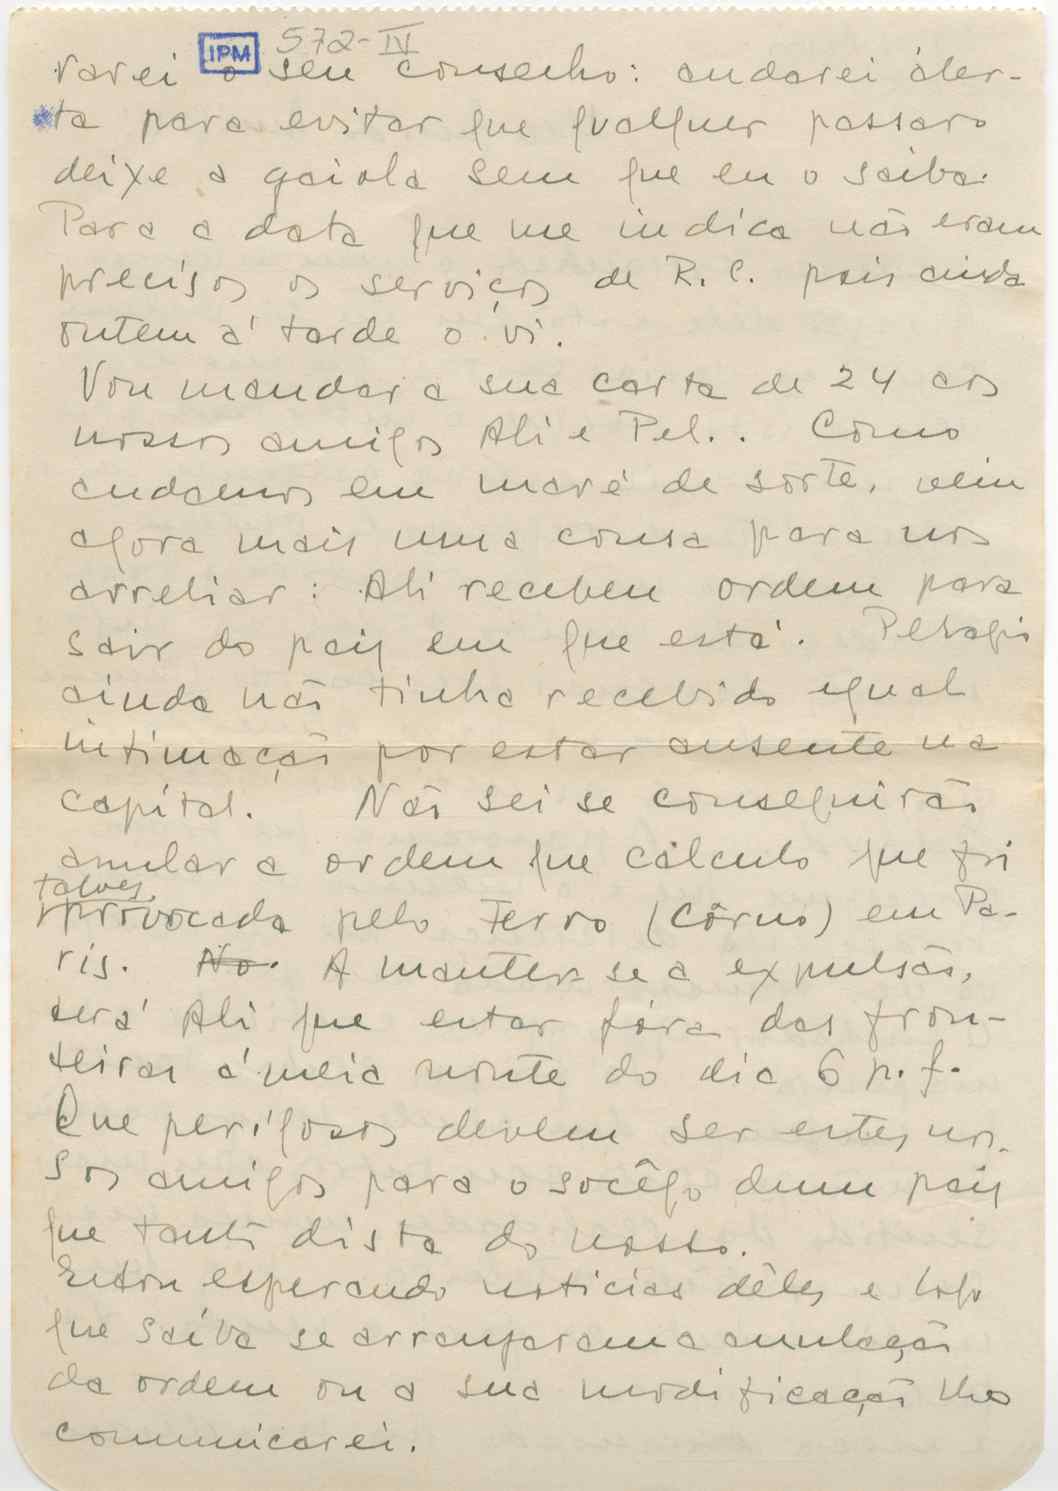 572-IV
IPM
varei o seu conselho: andarei áler-
ta para evitar que qualquer passaro
deixe a gaiola sem que eu o saiba.
Para a data que me indica não eram
precisos os serviços de R. C. pois ainda
ontem á tarde o vi.
Vou mandar a sua carta de 24 aos
nossos amigos Ali e Pel.. Como
andamos em maré de sorte, vem
agora mais uma cousa para nos
arreliar: Ali recebeu ordem para
sair do pais em que está. Pelagio
ainda não tinha recebido egual
intimação por estar ausente na
capital. Não sei se conseguirão
anular a ordem que cálculo que foi
talvez
provocada pelo Ferro (Côrno) em Pa-
ris. No. A manter-se a expulsão,
será Ali que estar fóra das fron-
teiras á meia noute do dia 6 p.f.
Que perigosos devem ser estes nos-
sos amigos para o socêgo dum pais
que tanto dista do nosso.
Estou esperando noticias dêles e logo
que saiba se arranjaram a anulação
da ordem ou a sua modificação lho
comunicarei.